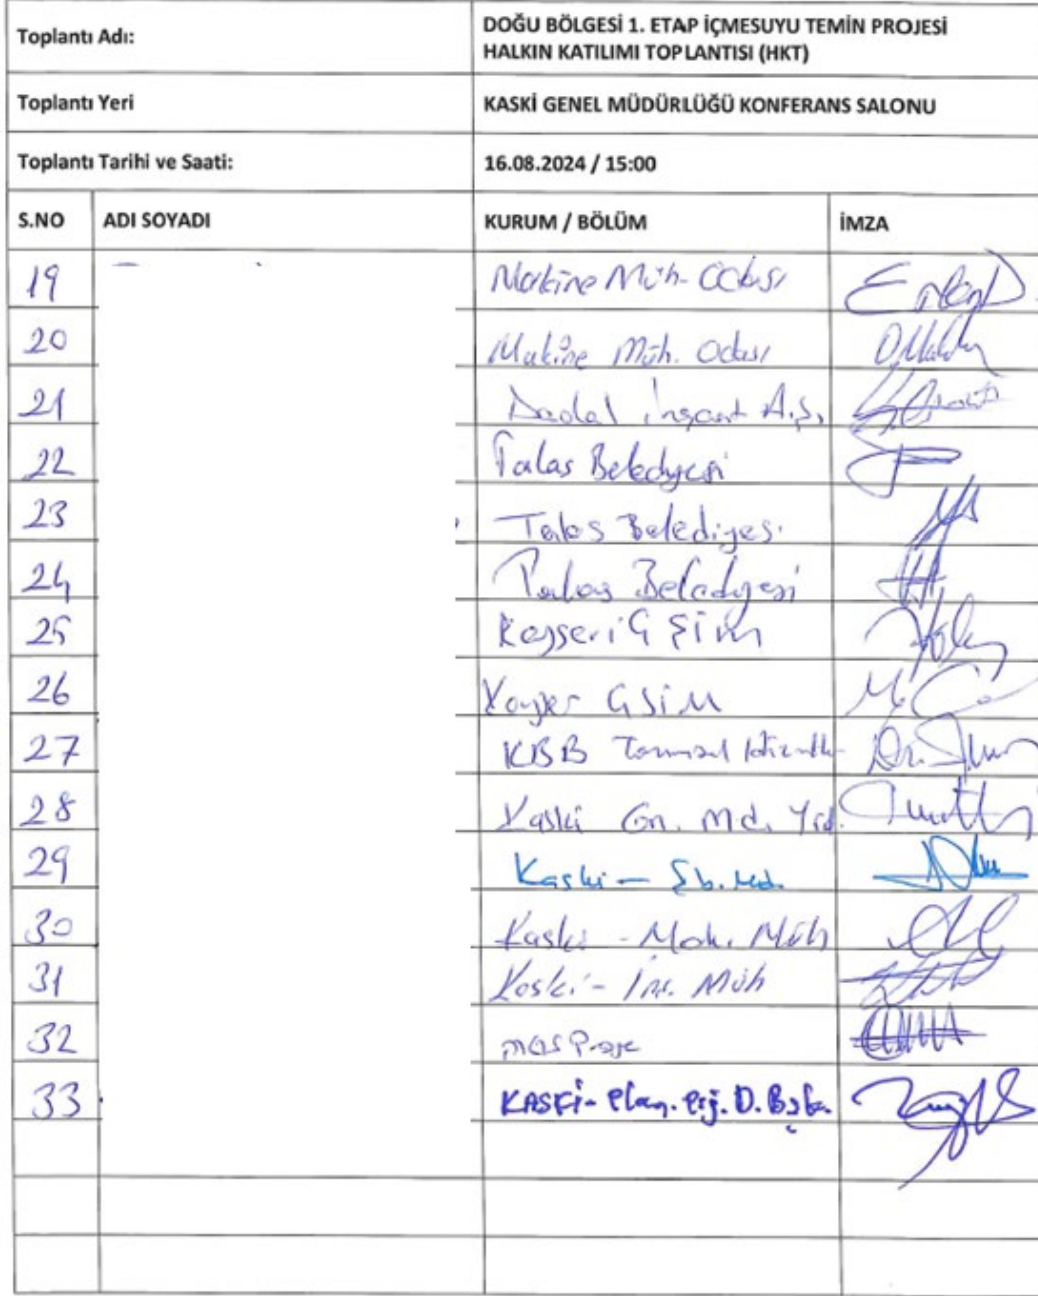 Toplantı Adı: DOĞU BÖLGESİ 1. ETAP İÇMESUYU TEMİN PROJESİ
HALKIN KATILIMI TOPLANTISI (HKT)
Toplantı Yeri KASKİ GENEL MÜDÜRLÜĞÜ KONFERANS SALONU
Toplantı Tarihi ve Saati: 16.08.2024 / 15:00
S.NO ADI SOYADI KURUM / BÖLÜM İMZA
19 Makine Müh. Odası
20 Makine Müh. Odası
21 Dadal İnşaat A.Ş.
22 Talas Belediyesi
23 Talas Belediyesi
24 Talas Belediyesi
25 Kayseri GSİM
26 Kayseri GSİM
27 KBB
28 Kaski Gn. Md. Yrd.
29 Kaski - Şb. Md.
30 Kaski - Mak. Müh
31 Kaski - İnş. Müh
32 mas Proje
33 KASKİ - Plan. Prj. D. Bşk.